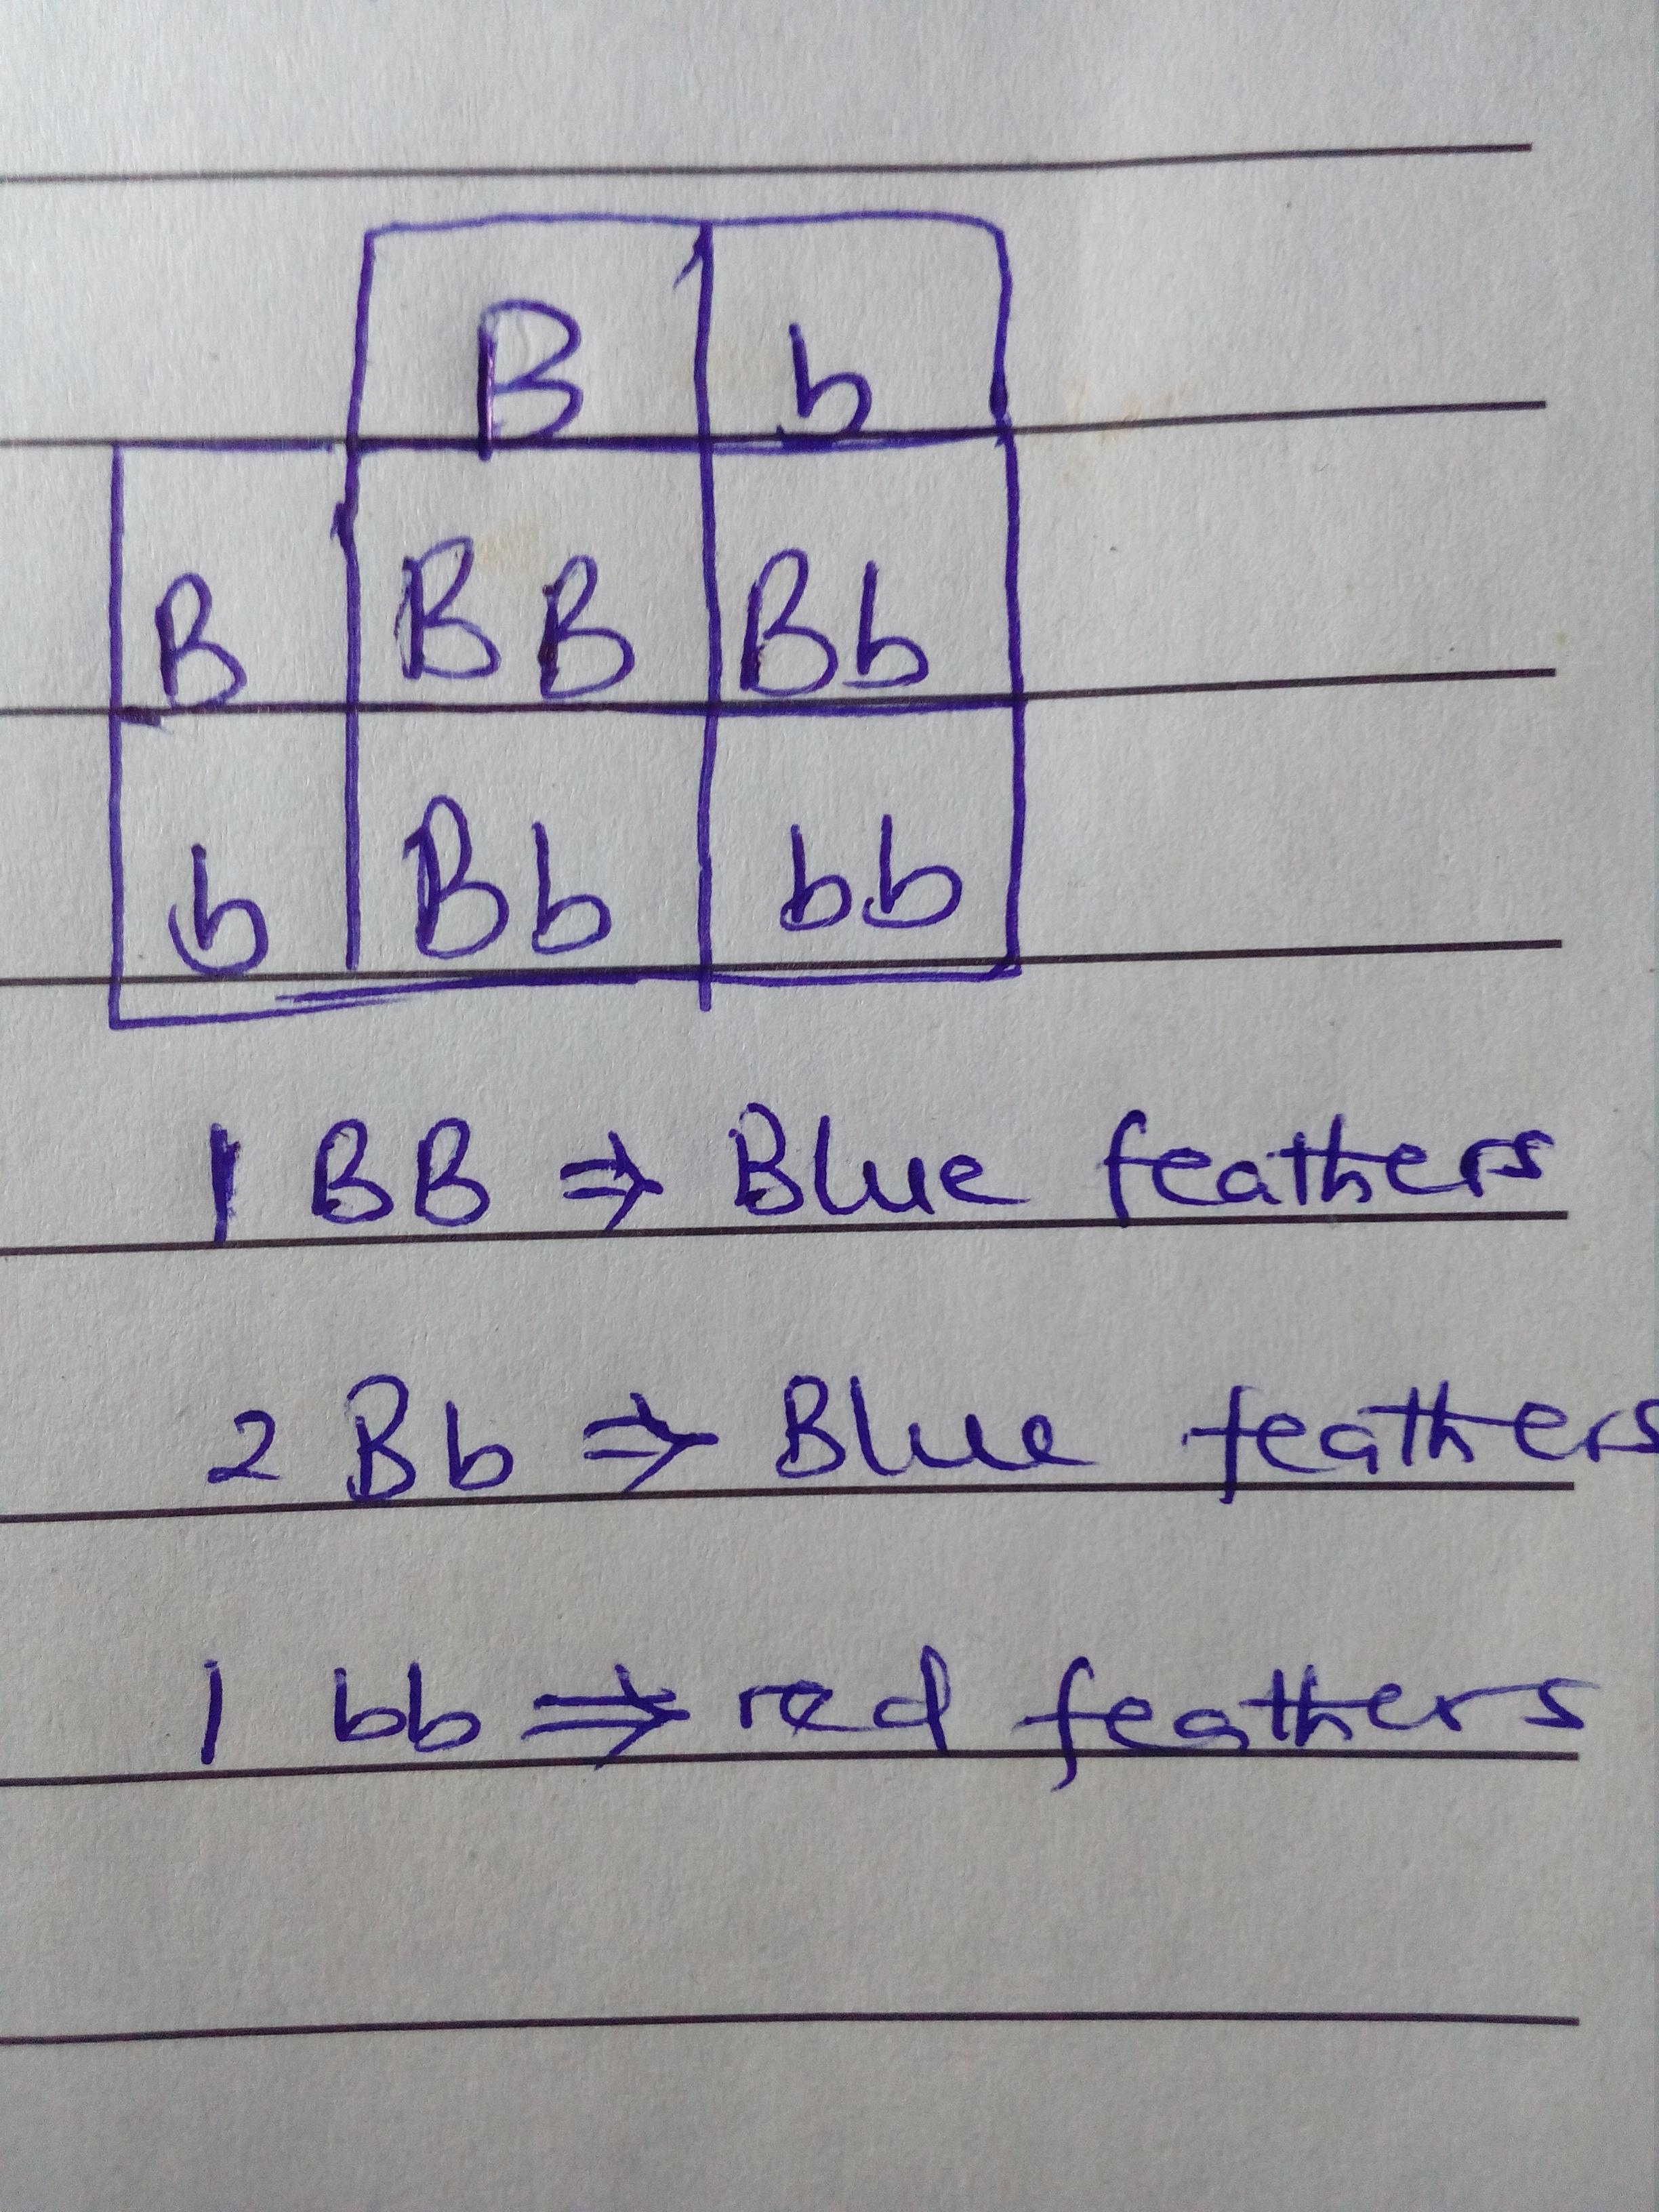 B b
B BB Bb
b Bb bb
1 BB ⇒ Blue feathers
2 Bb ⇒ Blue feathers
1 bb ⇒ red feathers